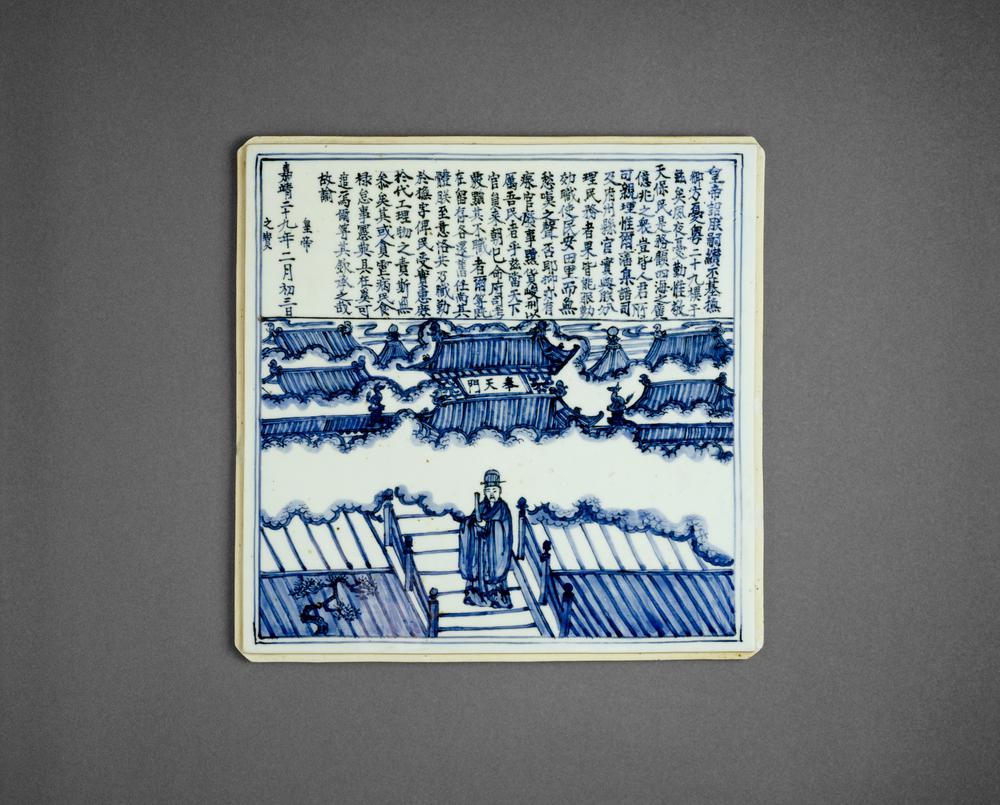 皇帝詔朕嗣纘丕基撫
御方夏粤二十九禩于
兹矣夙夜憂勤惟敬
天保民是務顧四海之廣
億兆之衆豈皆人君所
可親理惟爾藩臬諸司
及府州縣官實與朕分
理民務者果皆能服勤
効職使民安田里而無
愁嘆之聲否耶抑亦有
瘝官廢事黷貨峻刑以
厲吾民者乎兹當天下
官員來朝已命府司考
覈黜其不職者爾等既
在留各各還舊任尚其
體朕至意恪共乃職勤
於撫字俾民受實惠庶
於代工理物之責斯無
忝矣其或貪虐病民食
祿怠事憲典具在奚可
逭焉爾等其欽承之哉
故諭
皇帝
之寶
嘉靖二十九年二月初三日
奉天門